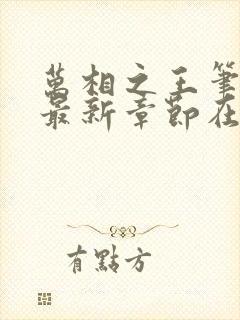 萬相之王筆
最新章節在
有點方